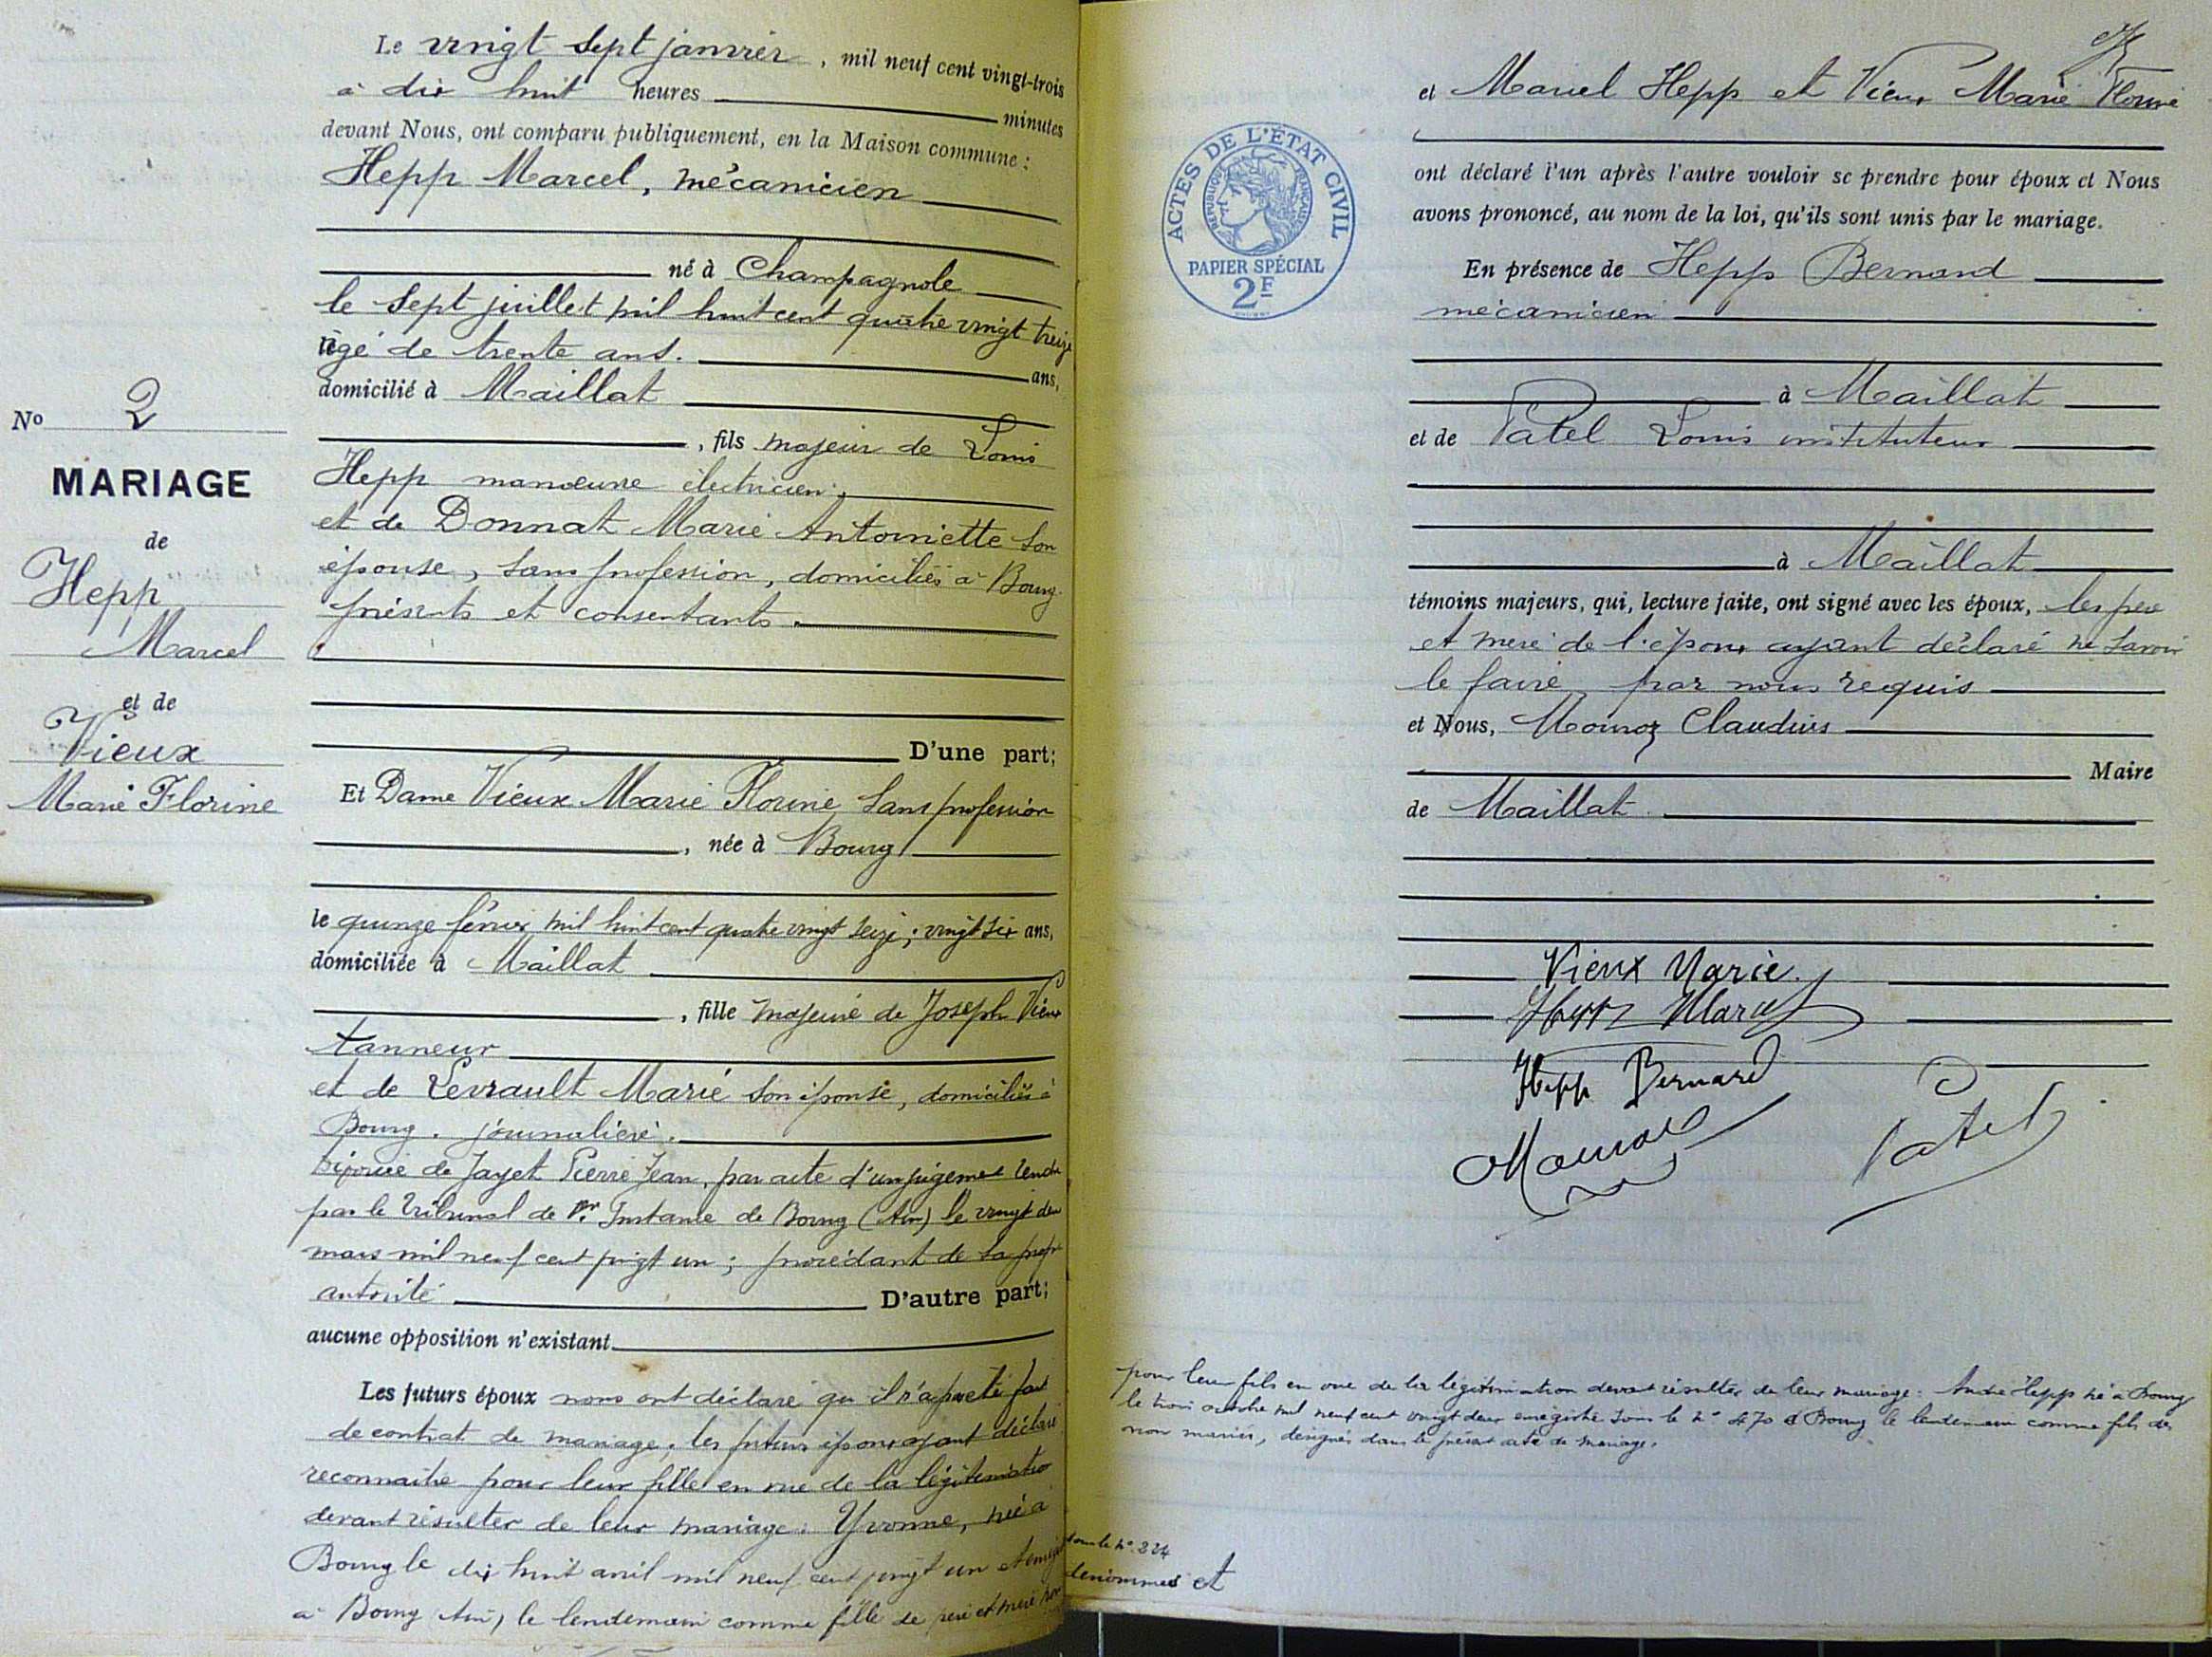 Le vingt sept janvier, mil neuf cent vingt-trois
à dix huit heures minutes
devant Nous, ont comparu publiquement, en la Maison commune :
Hepp Marcel, mécanicien
né à Champagnole
le sept juillet mil huit cent quatre vingt treize
âgé de trente ans. ans,
domicilié à Maillat
No 2
MARIAGE
de
Hepp
Marcel
et de
Vieux
Marie Florine
, fils majeur de Louis
Hepp manœuvre électricien,
et de Donnat Marie Antoinette son
épouse, sans profession, domiciliés à Bourg
présents et consentants.
D'une part;
Et Dame Vieux Marie Florine sans profession
, née à Bourg
le quinze février mil huit cent quatre vingt seize ; vingt six ans,
domiciliée à Maillat
, fille majeure de Joseph Vieux
tanneur
et de Levrault Marie son épouse, domiciliés à
Bourg. journalière.
divorcée de Jayet Pierre Jean, par acte d'un jugement rendu
par le tribunal de 1re Instance de Bourg (Ain) le vingt deux
mars mil neuf cent vingt un ; procédant de sa propre
autorité D'autre part;
aucune opposition n'existant
Les futurs époux nous ont déclaré qu'il n'a pas été fait
de contrat de mariage, les futurs époux ayant déclaré
reconnaître pour leur fille en vue de la légitimation
devant résulter de leur mariage : Yvonne, née à
Bourg le dix huit avril mil neuf cent vingt un et enregistrée
sous le n° 224
à Bourg (Ain) le lendemain comme fille de père et mère non
dénommés et
et Marcel Hepp et Vieux Marie Florine
ACTES DE L'ÉTAT CIVIL
RÉPUBLIQUE FRANÇAISE
PAPIER SPÉCIAL
2F
ont déclaré l'un après l'autre vouloir se prendre pour époux et Nous
avons prononcé, au nom de la loi, qu'ils sont unis par le mariage.
En présence de Hepp Bernard
mécanicien
à Maillat
et de Patel Louis instituteur
à Maillat
témoins majeurs, qui, lecture faite, ont signé avec les époux, les père
et mère de l'époux ayant déclaré ne savoir
le faire, par nous requis
et Nous, Claudius
Maire
de Maillat
Vieux Marie
Hepp Marcel
Hepp Bernard
Patel
pour leur fils en vue de la légitimation devant résulter de leur mariage : André Hepp né à Bourg
le trois octobre mil neuf cent vingt deux enregistré sous le n° 470 à Bourg le lendemain comme fils des
non mariés, désignés dans le présent acte de mariage.